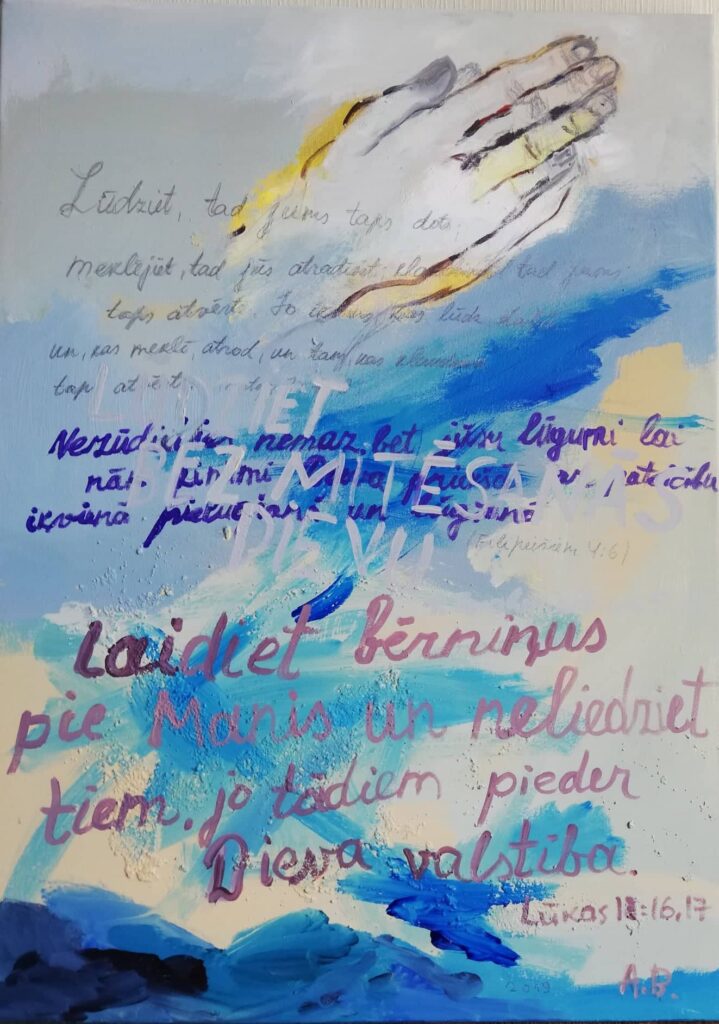 Lūdziet, tad jums taps dots,
meklējiet, tad jūs atradīsit, klaudziniet tad jums
taps atvērts. Jo ikviens, kas lūdz dabū
un, kas meklē, atrod, un tam, kas klaudzina
tap atvērts
LŪDZIET
Nezūdieties nemaz, bet jūsu lūgumi lai
BEZ MITĒŠANĀS
nāk zināmi Dieva priekšā ar pateicību
ikvienā pielūgšanā un lūgšanā
DIEVU
(Filipiešiem 4:6)
Laidiet bērniņus
pie Manis un neliedziet
tiem, jo tādiem pieder
Dieva valstība.
Lūkas 18:16,17
2019
A.B.